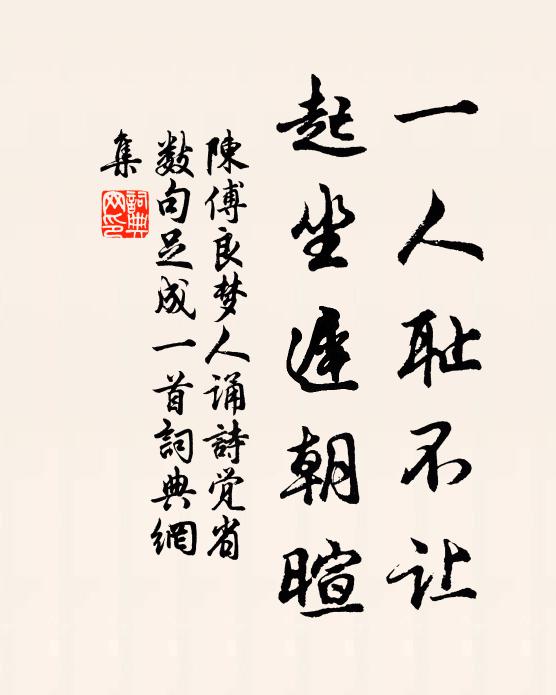 一人耻不让
起坐遲朝暄
陳傅良梦人诵詩觉省
数句足成一首詞典網
集
詞典
网印